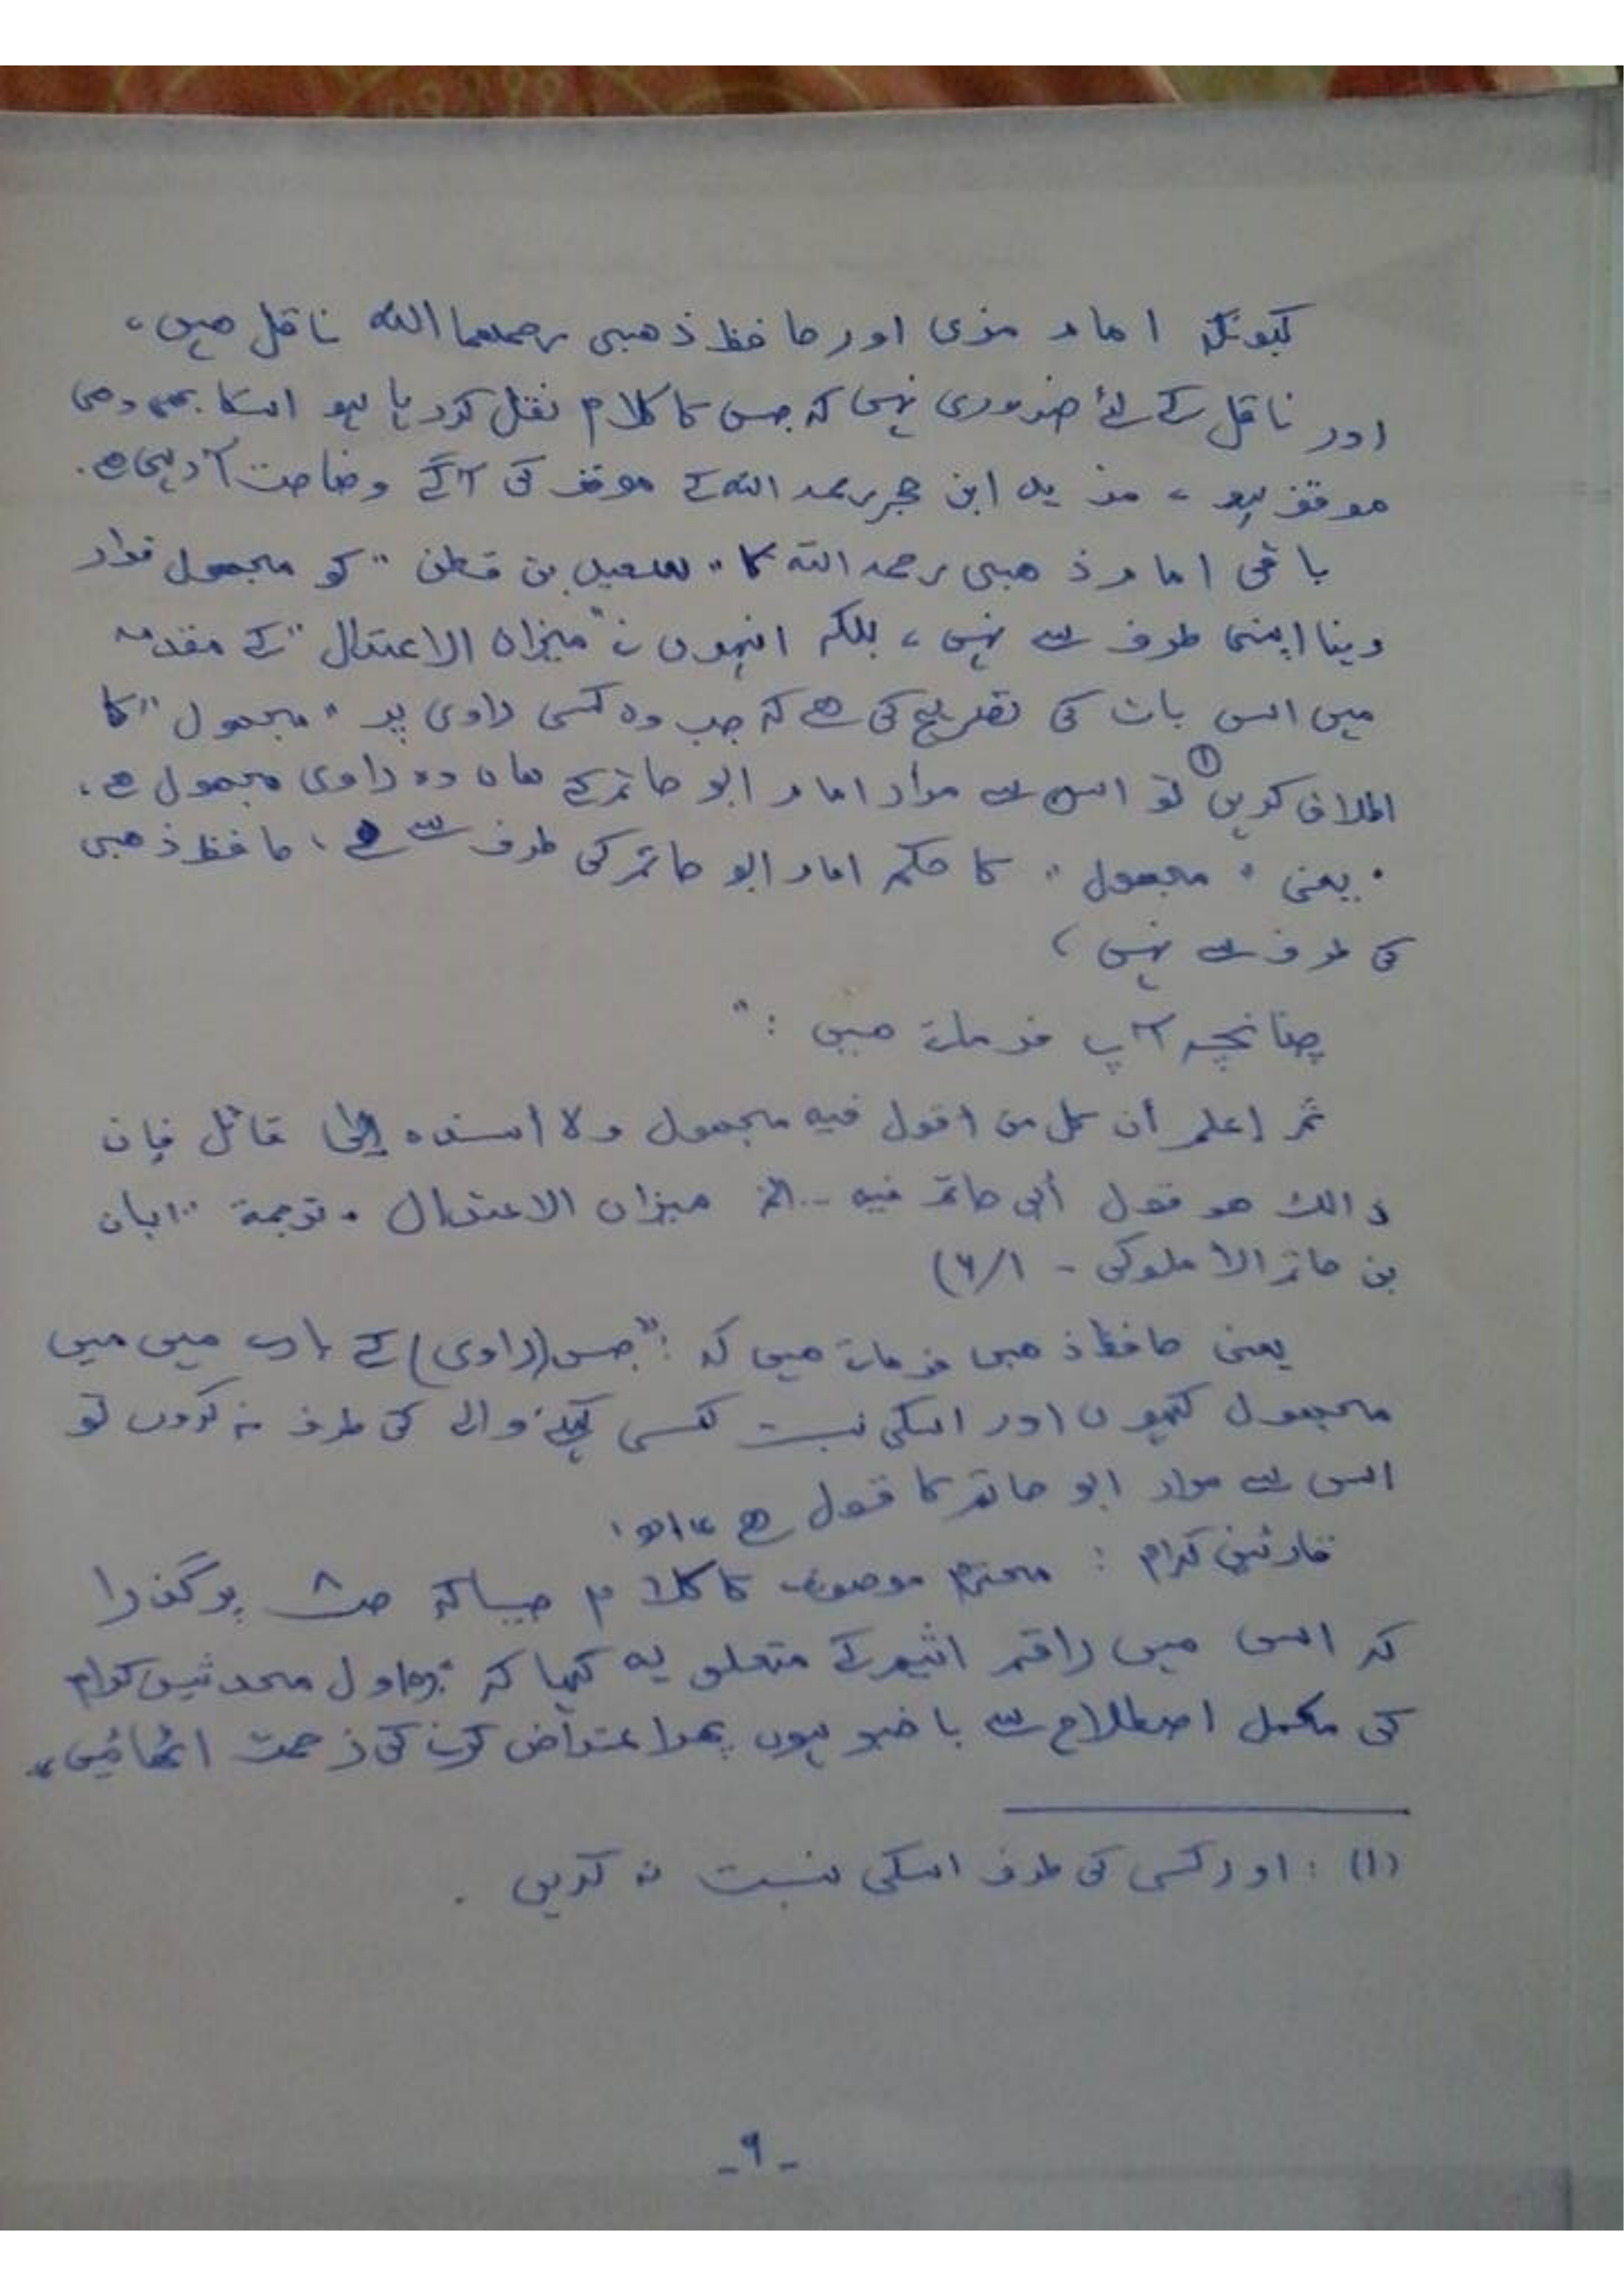 کیونکہ امام مزی اور حافظ ذھبی رحمھما اللہ ناقل ھیں،
اور ناقل کے لئے ضروری نہیں کہ جس کا کلام نقل کررہا ہو اسکا بھی وھی
موقف ہو، مزید ابن حجر رحمہ اللہ کے موقف کی آگے وضاحت آرہی ھے۔
باقی امام ذھبی رحمہ اللہ کا "سعید بن قطن" کو مجھول قرار
دینا اپنی طرف سے نہیں، بلکہ انہوں نے "میزان الاعتدال" کے مقدمہ
میں اس بات کی تصریح کی ھے کہ جب وہ کسی راوی پر "مجھول" کا
اطلاق کریں ① تو اس سے مراد امام ابو حاتم کے ھاں وہ راوی مجھول ھے،
یعنی "مجھول" کا حکم امام ابو حاتم کی طرف سے ھے، حافظ ذھبی
کی طرف سے نہیں،
چنانچہ آپ فرماتے ھیں: "
ثم إعلم أن كل من أقول فيه مجهول ولا أسنده إلى قائل فإن
ذالك هو قول أبي حاتم فيه ... الخ میزان الاعتدال ۔ ترجمة "ابان
بن حاتم الاملوکی - ۱/۶)
یعنی حافظ ذھبی فرماتے ھیں کہ: "جس (راوی) کے بارے میں میں
مجھول کہوں اور اسکی نسبت کسی کہنے والے کی طرف نہ کروں تو
اس سے مراد ابو حاتم کا قول ھے" اھ،
قارئین کرام: محترم موصوف کا کلام جیساکہ ص۸ پر گذرا
کہ اس میں راقم اثیم کے متعلق یہ کہا کہ "اول محدثین کرام
کی مکمل اصطلاح سے باخبر ہوں پھر اعتراض کرنے کی زحمت اٹھائیں"
(۱): اور کسی کی طرف اسکی نسبت نہ کریں۔
-۹-